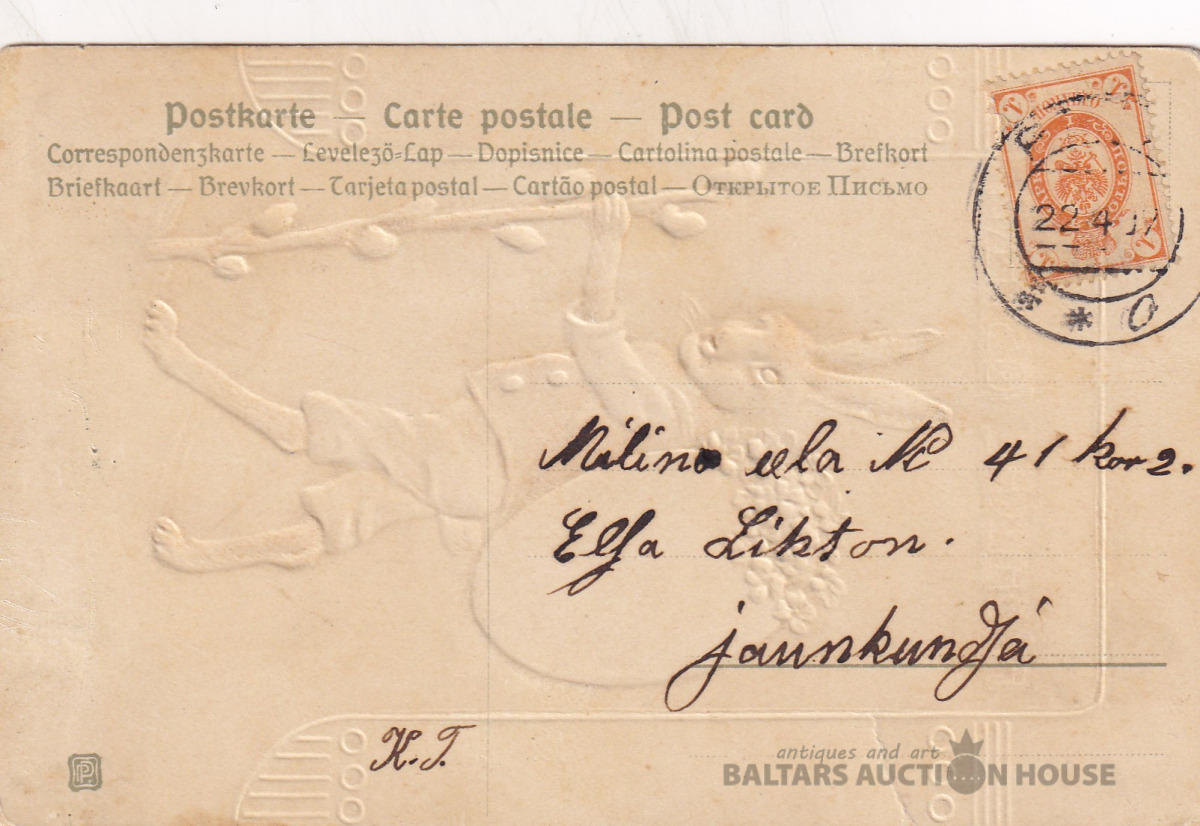 Postkarte — Carte postale — Post card
Correspondenzkarte — Levelező-Lap — Dopisnice — Cartolina postale — Brefkort
Briefkaart — Brevkort — Tarjeta postal — Cartão postal — Открытое Письмо
22.4.07
Milino eela № 41 kor 2.
Elfa Likston.
jaunkundſá
K. T.
antiques and art
BALTARS AUCTION HOUSE